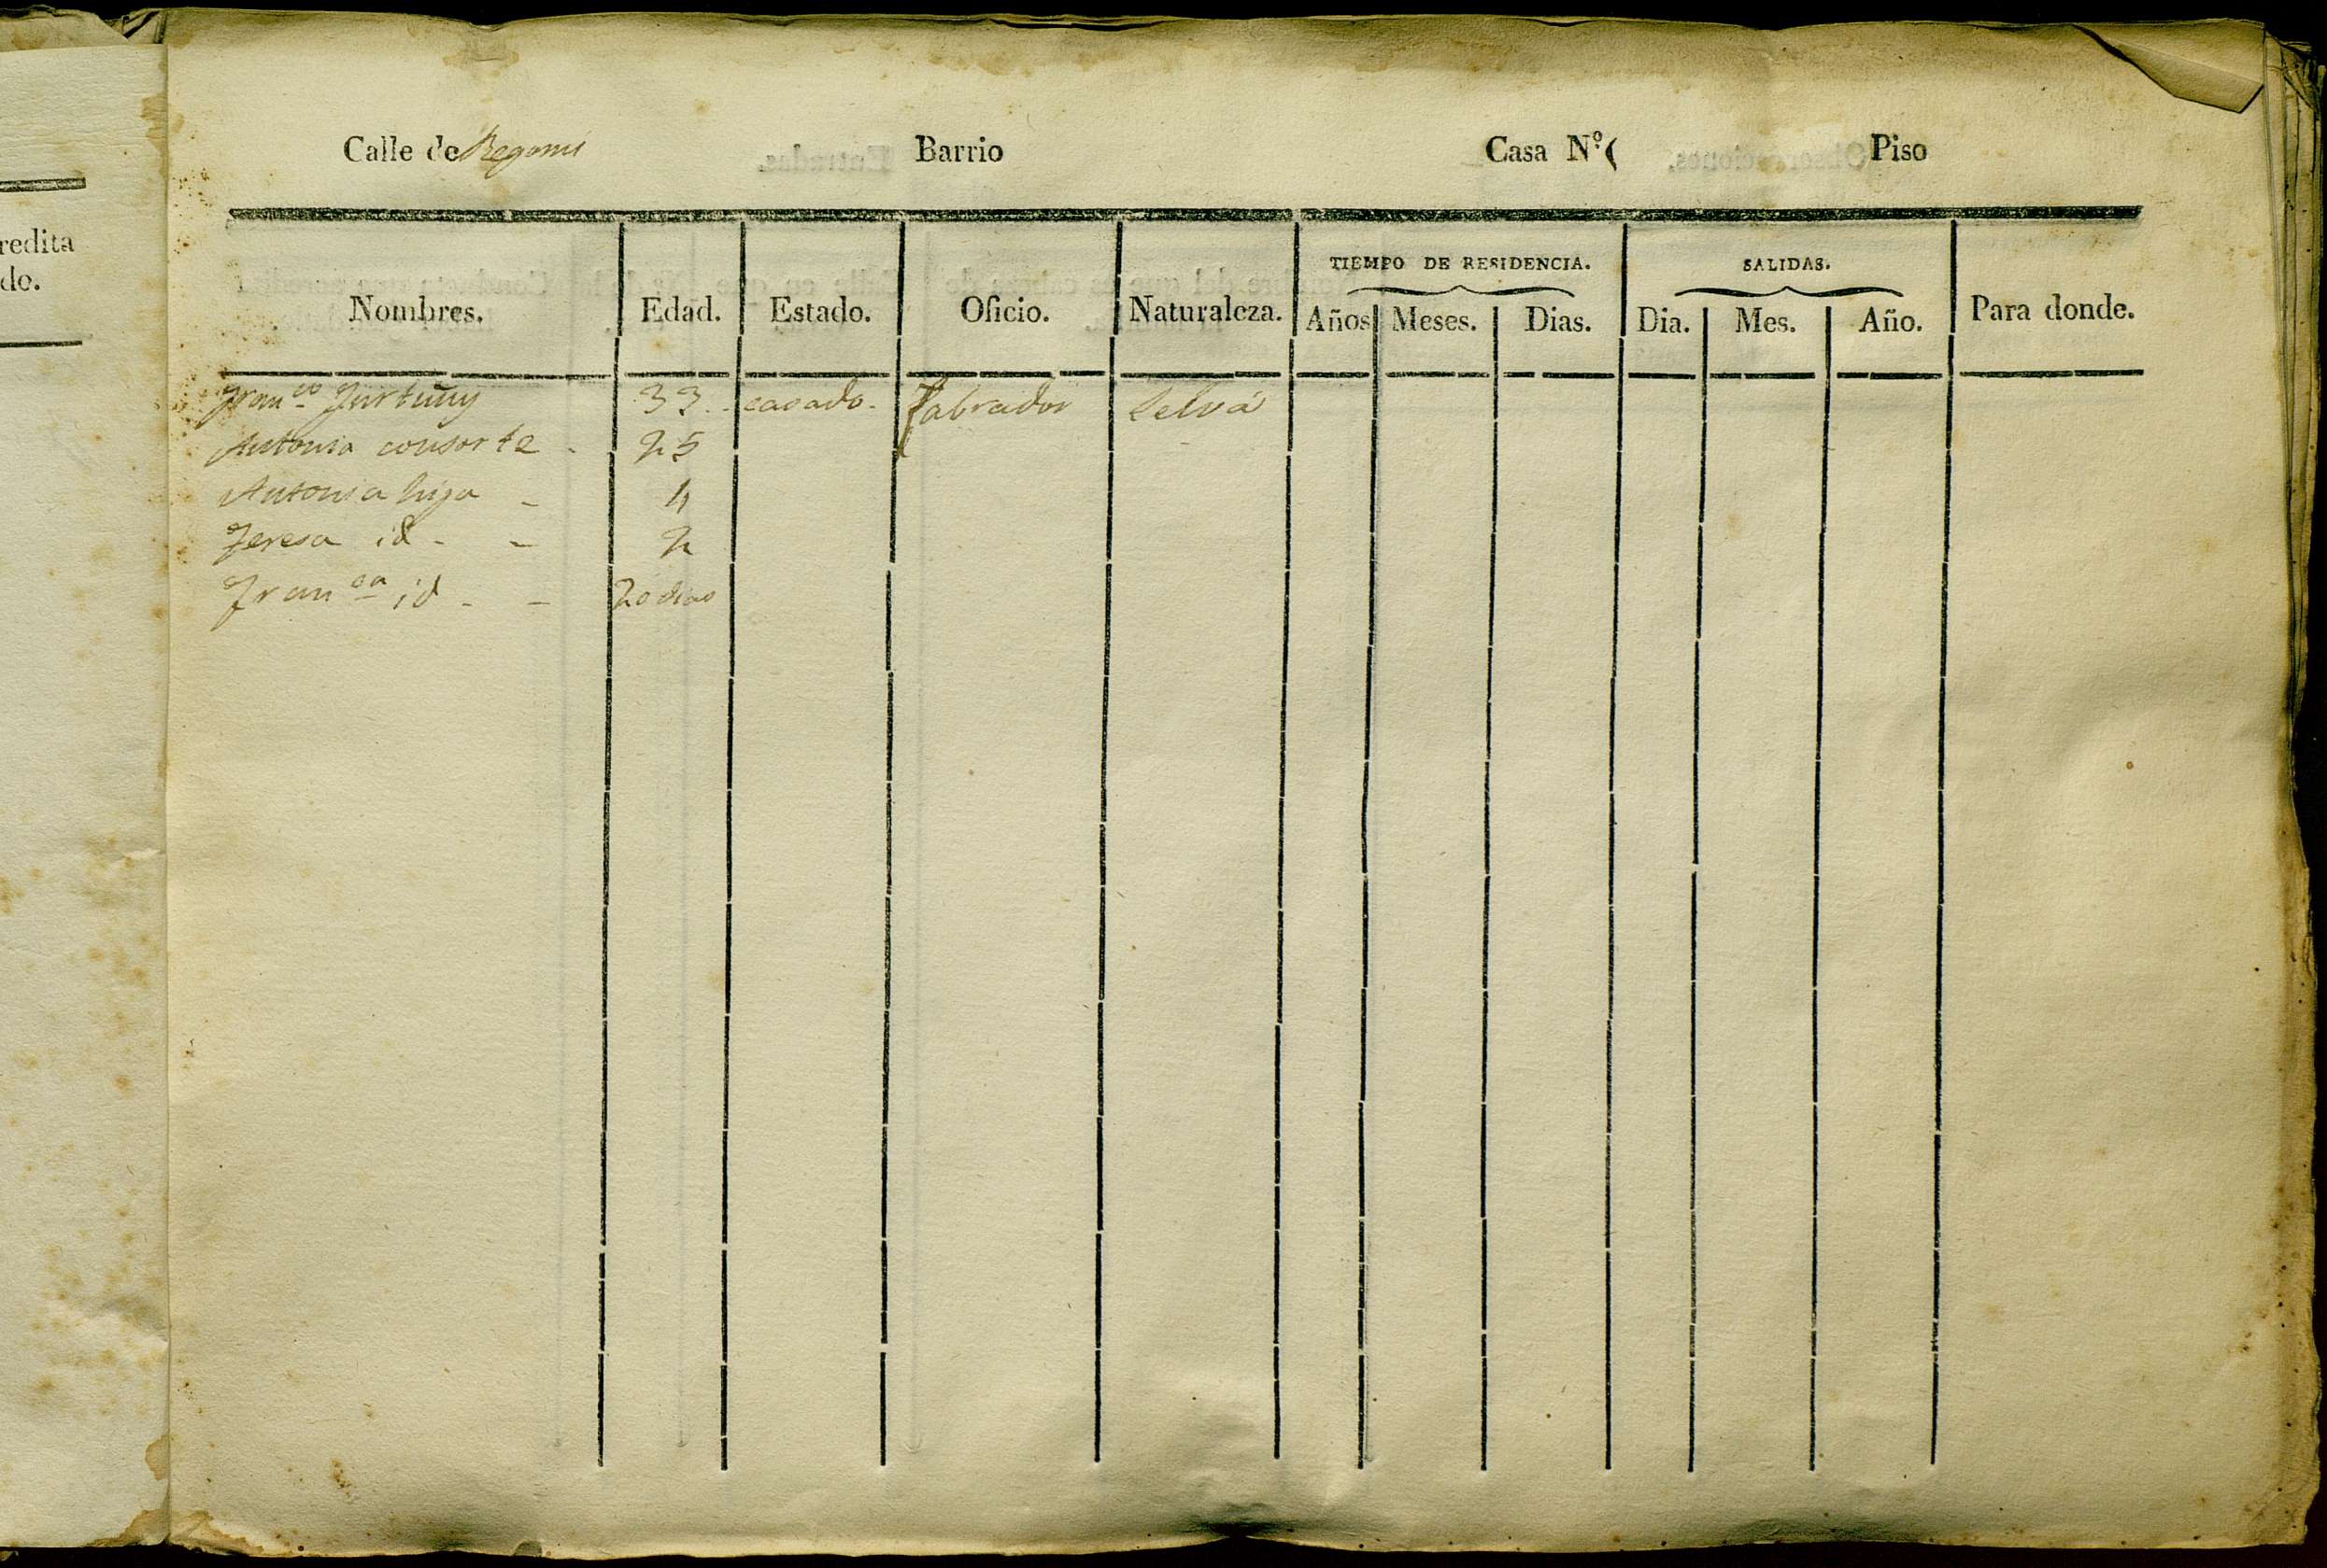 redita
do.
Calle de Regomi Barrio Casa N.º Piso
TIEMPO DE RESIDENCIA. SALIDAS.
Nombres. Edad. Estado. Oficio. Naturaleza. Años Meses. Dias. Dia. Mes. Año. Para donde.
Fran.co Furtuñy 33 casado labrador Selva
Antonia consorte 25
Antonia hija 4
Teresa id 2
Fran.ca id 20 dias